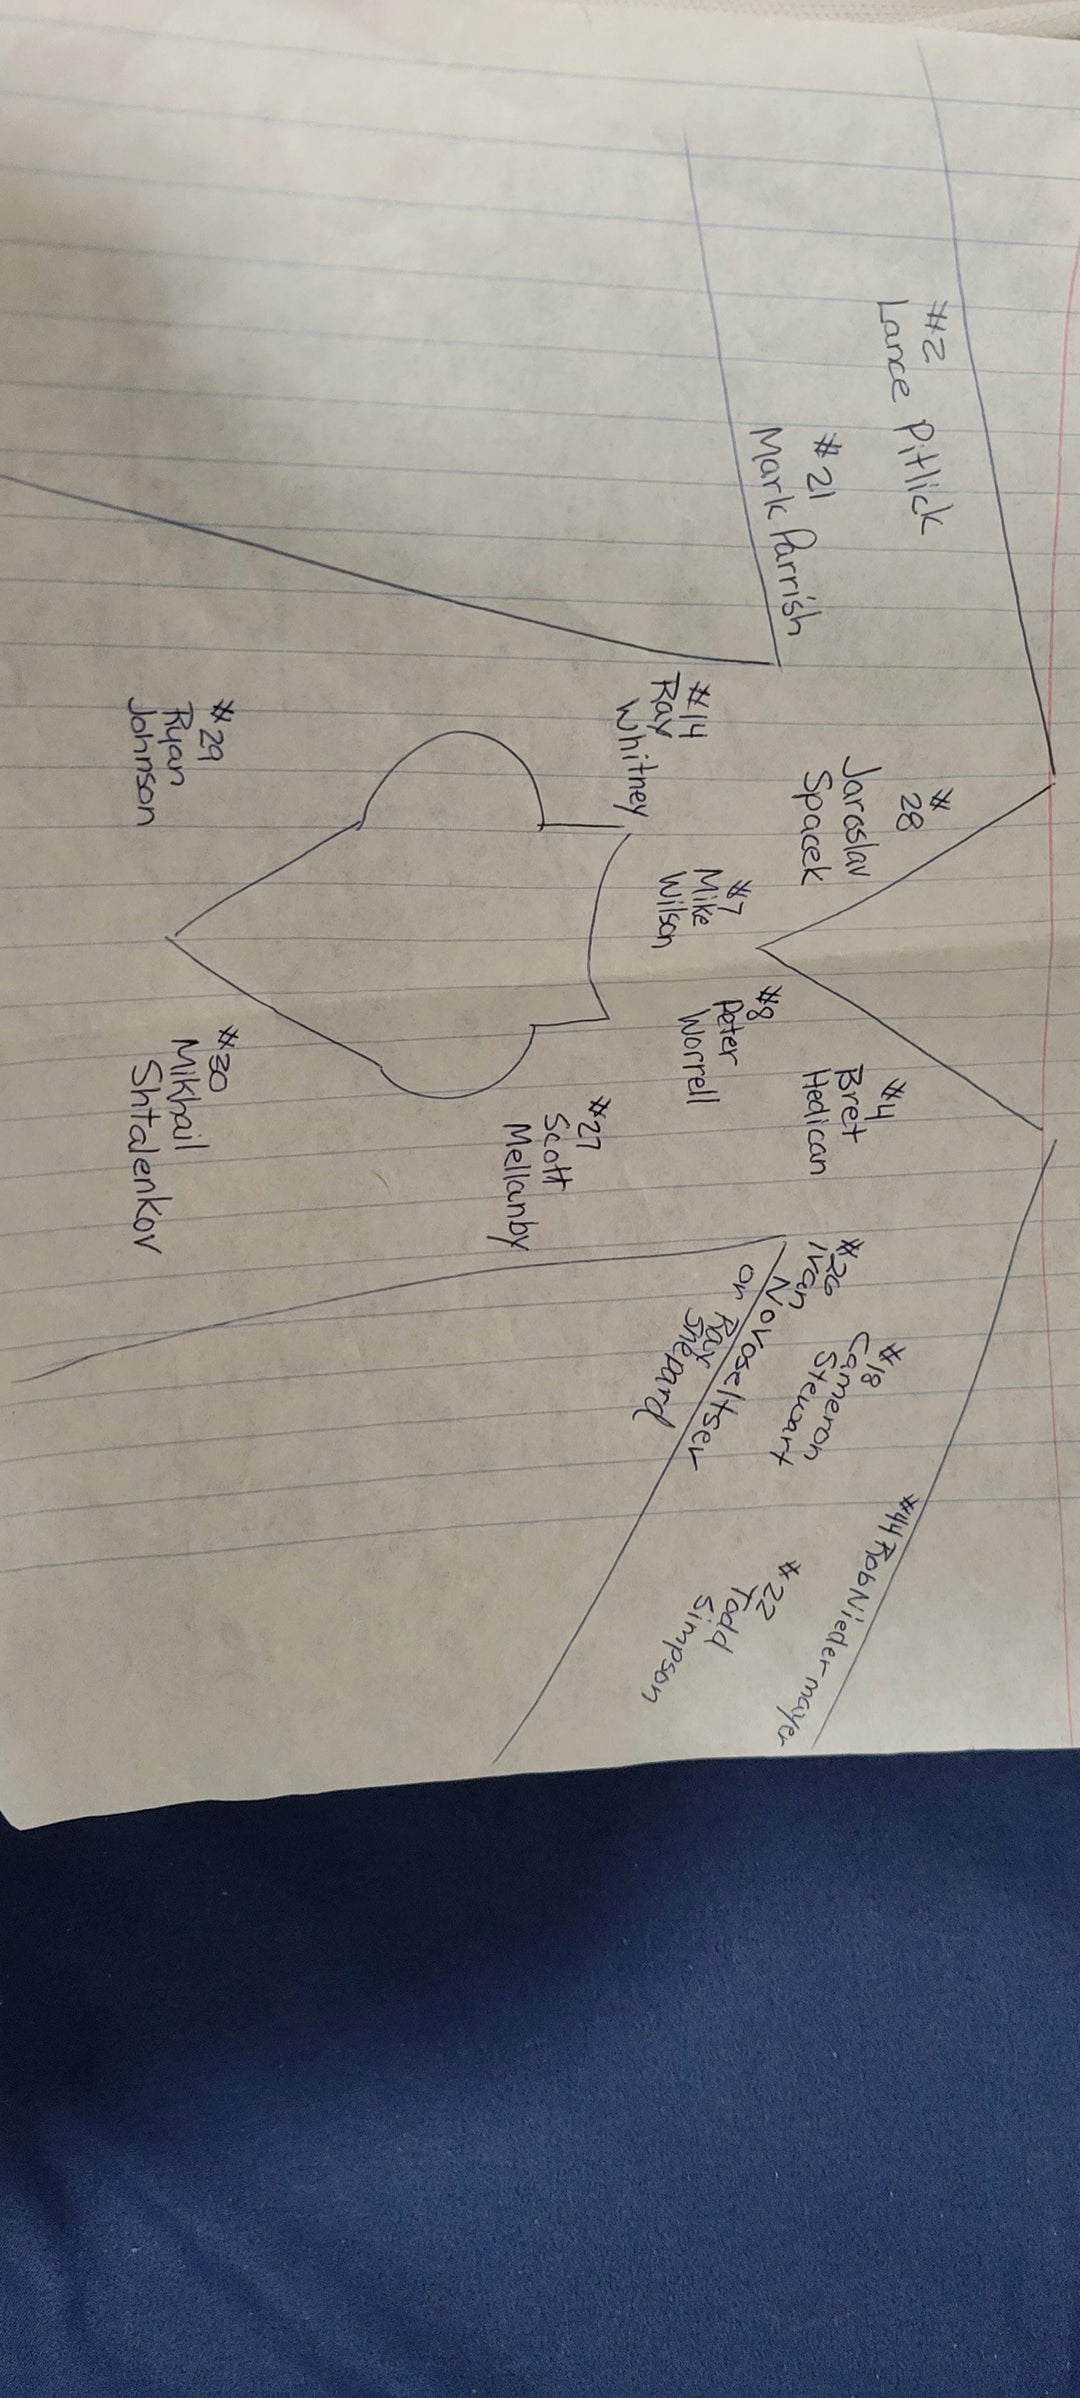 #2
Lance Pitlick
#21
Mark Parrish
#14
Ray
Whitney
#
28
Jaroslav
Spacek
#7
Mike
Wilson
#8
Peter
Worrell
#4
Bret
Hedican
#26
Ivan
Novoseltsev
or Ray
Shepard
#18
Cameron
Stewart
#44 Rob Niedermayer
#22
Todd
Simpson
#27
Scott
Mellanby
#29
Ryan
Johnson
#30
Mikhail
Shtalenkov